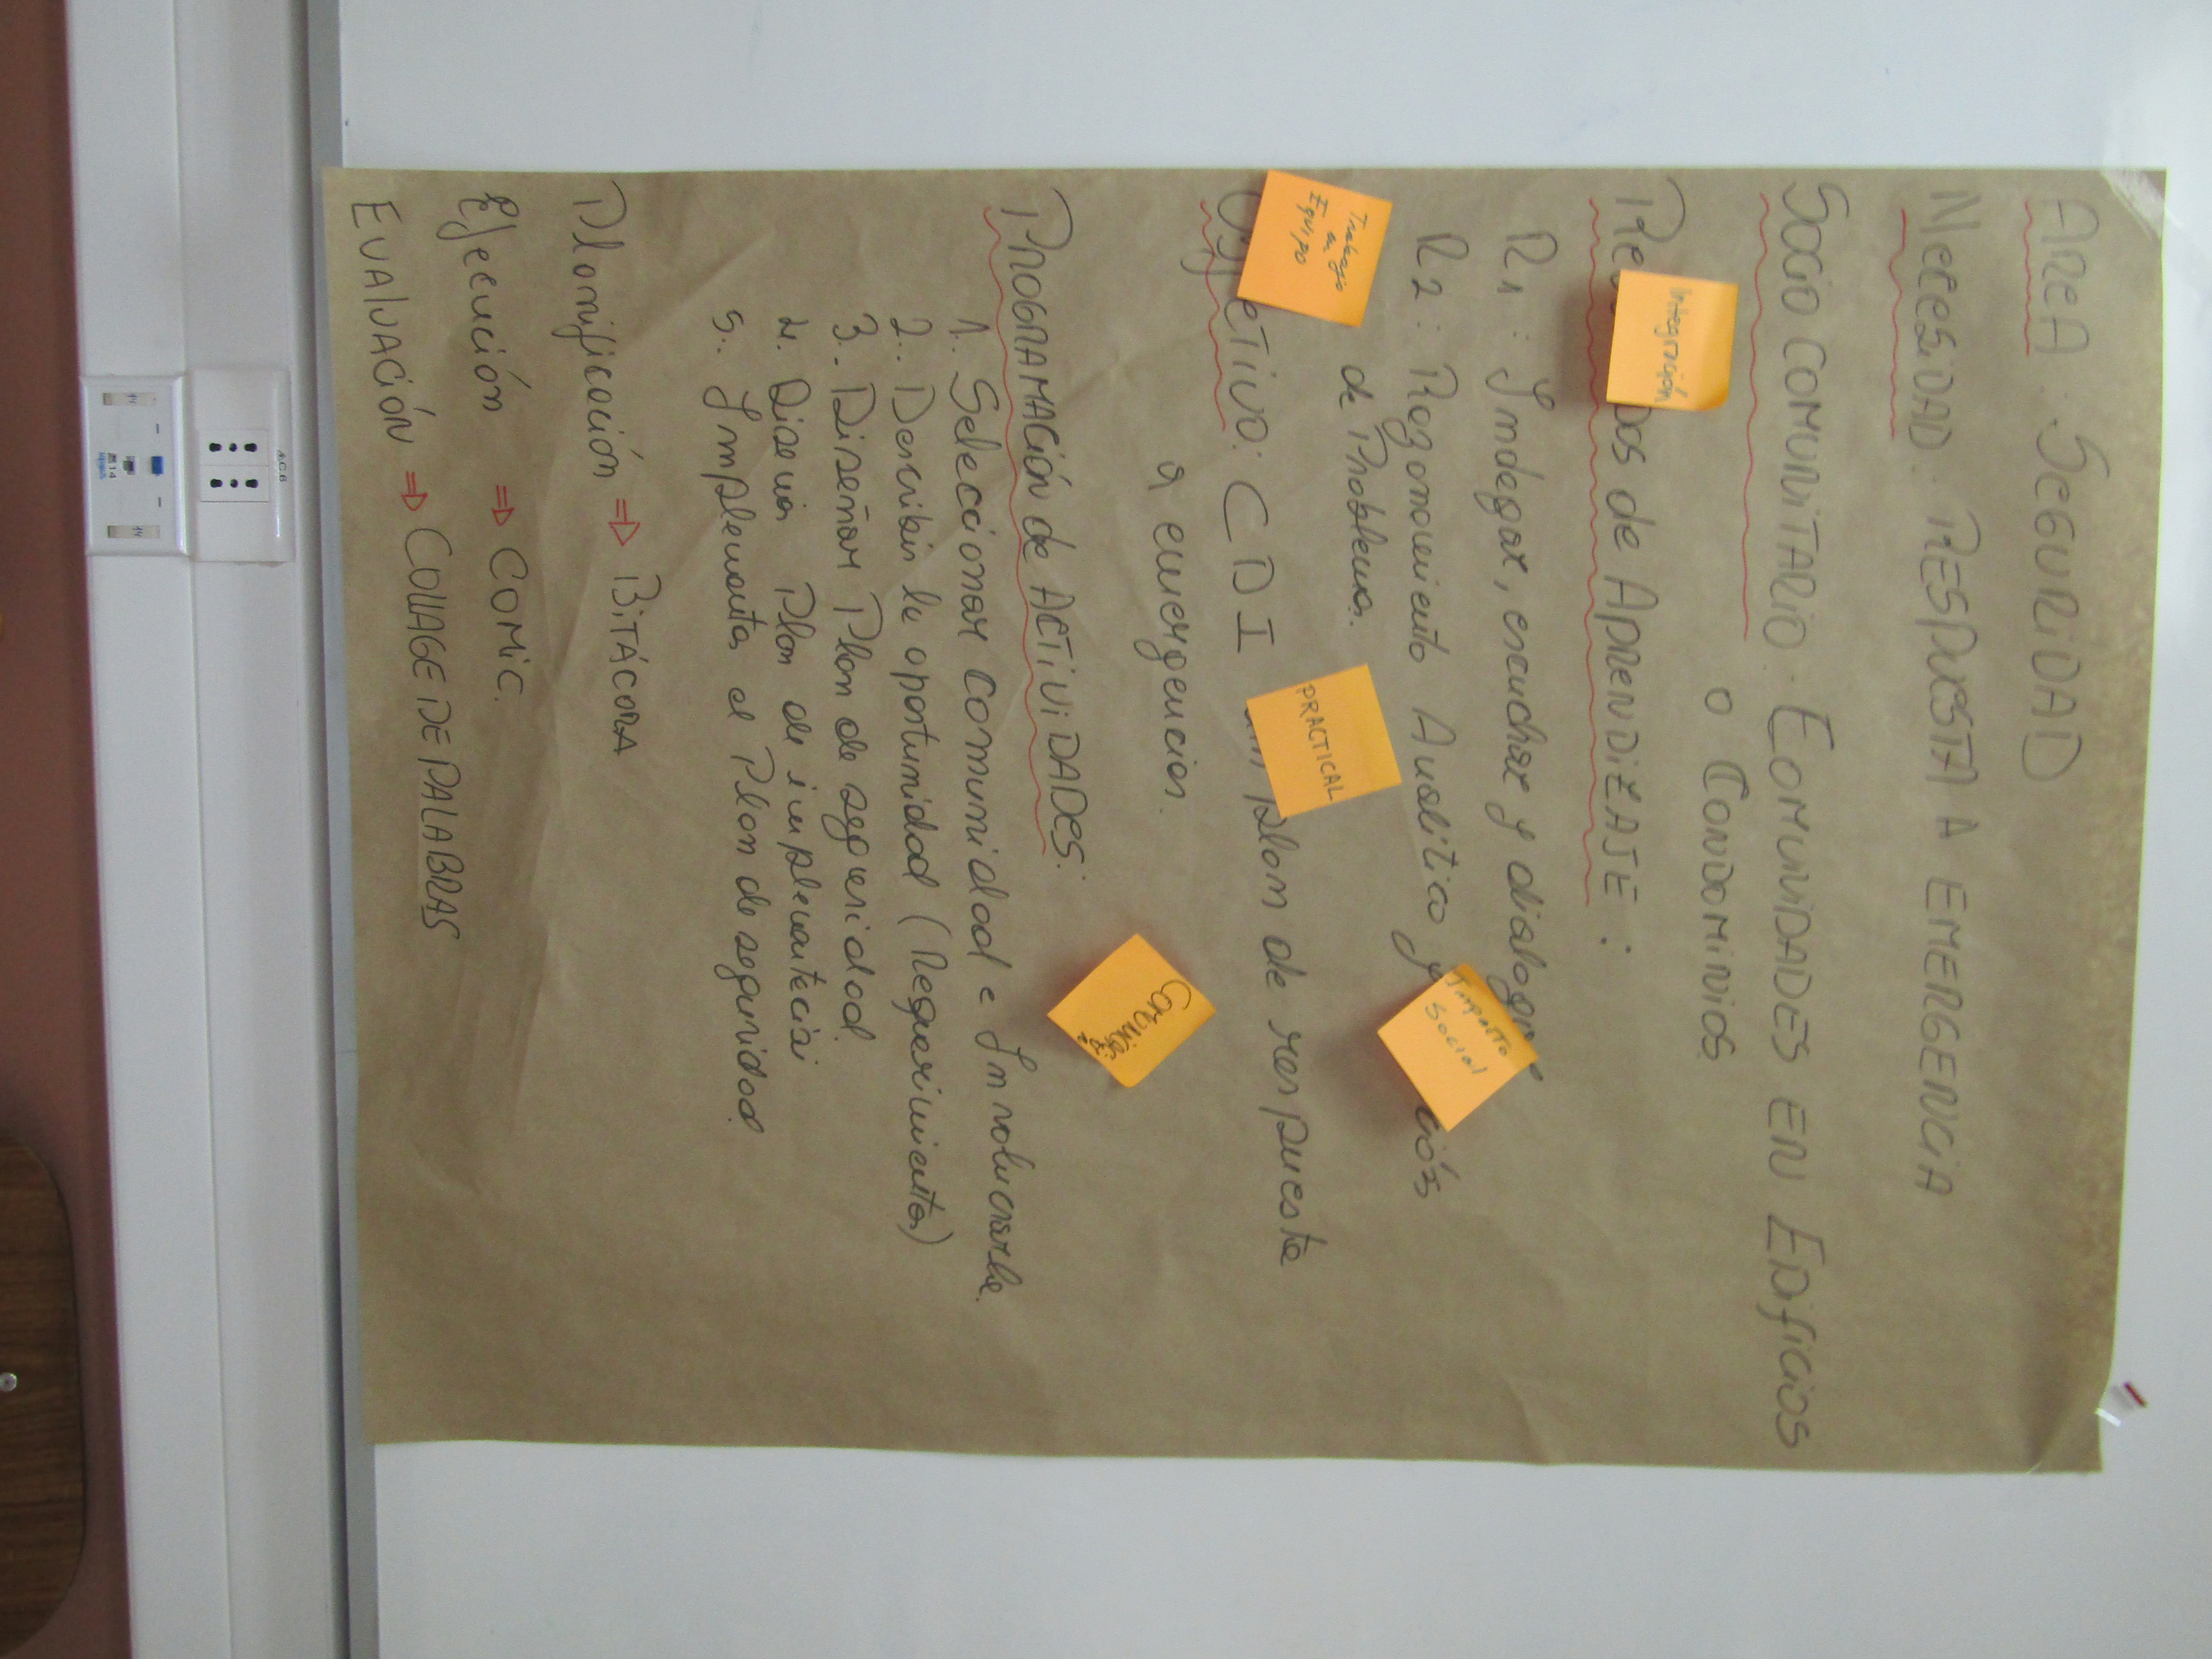 AREA. SEGURIDAD
NECESIDAD. RESPUESTA A EMERGENCIA
SOCIO COMUNITARIO. COMUNIDADES EN EDIFICIOS
O CONDOMINIOS
Integración
de APRENDIZAJE:
R1: Indagar, escuchar y dialogar
R2: Razonamiento Analítico y
de Problemas.
Impacto
Social
Trabajo
en
Equipo
OBJETIVO: CDI plan de respuesta
PRACTICAL
a emergencias.
PROGRAMACIÓN de ACTIVIDADES:
1. Seleccionar comunidad e Involucrarla.
2.. Describir la oportunidad (Requerimientos)
3.. Diseñar Plan de seguridad
4. Diseñar Plan de
5.. Implementar el Plan de seguridad.
Planificación ⇒ BITÁCORA
Ejecución ⇒ COMIC.
EVALUACIÓN ⇒ COLLAGE DE PALABRAS